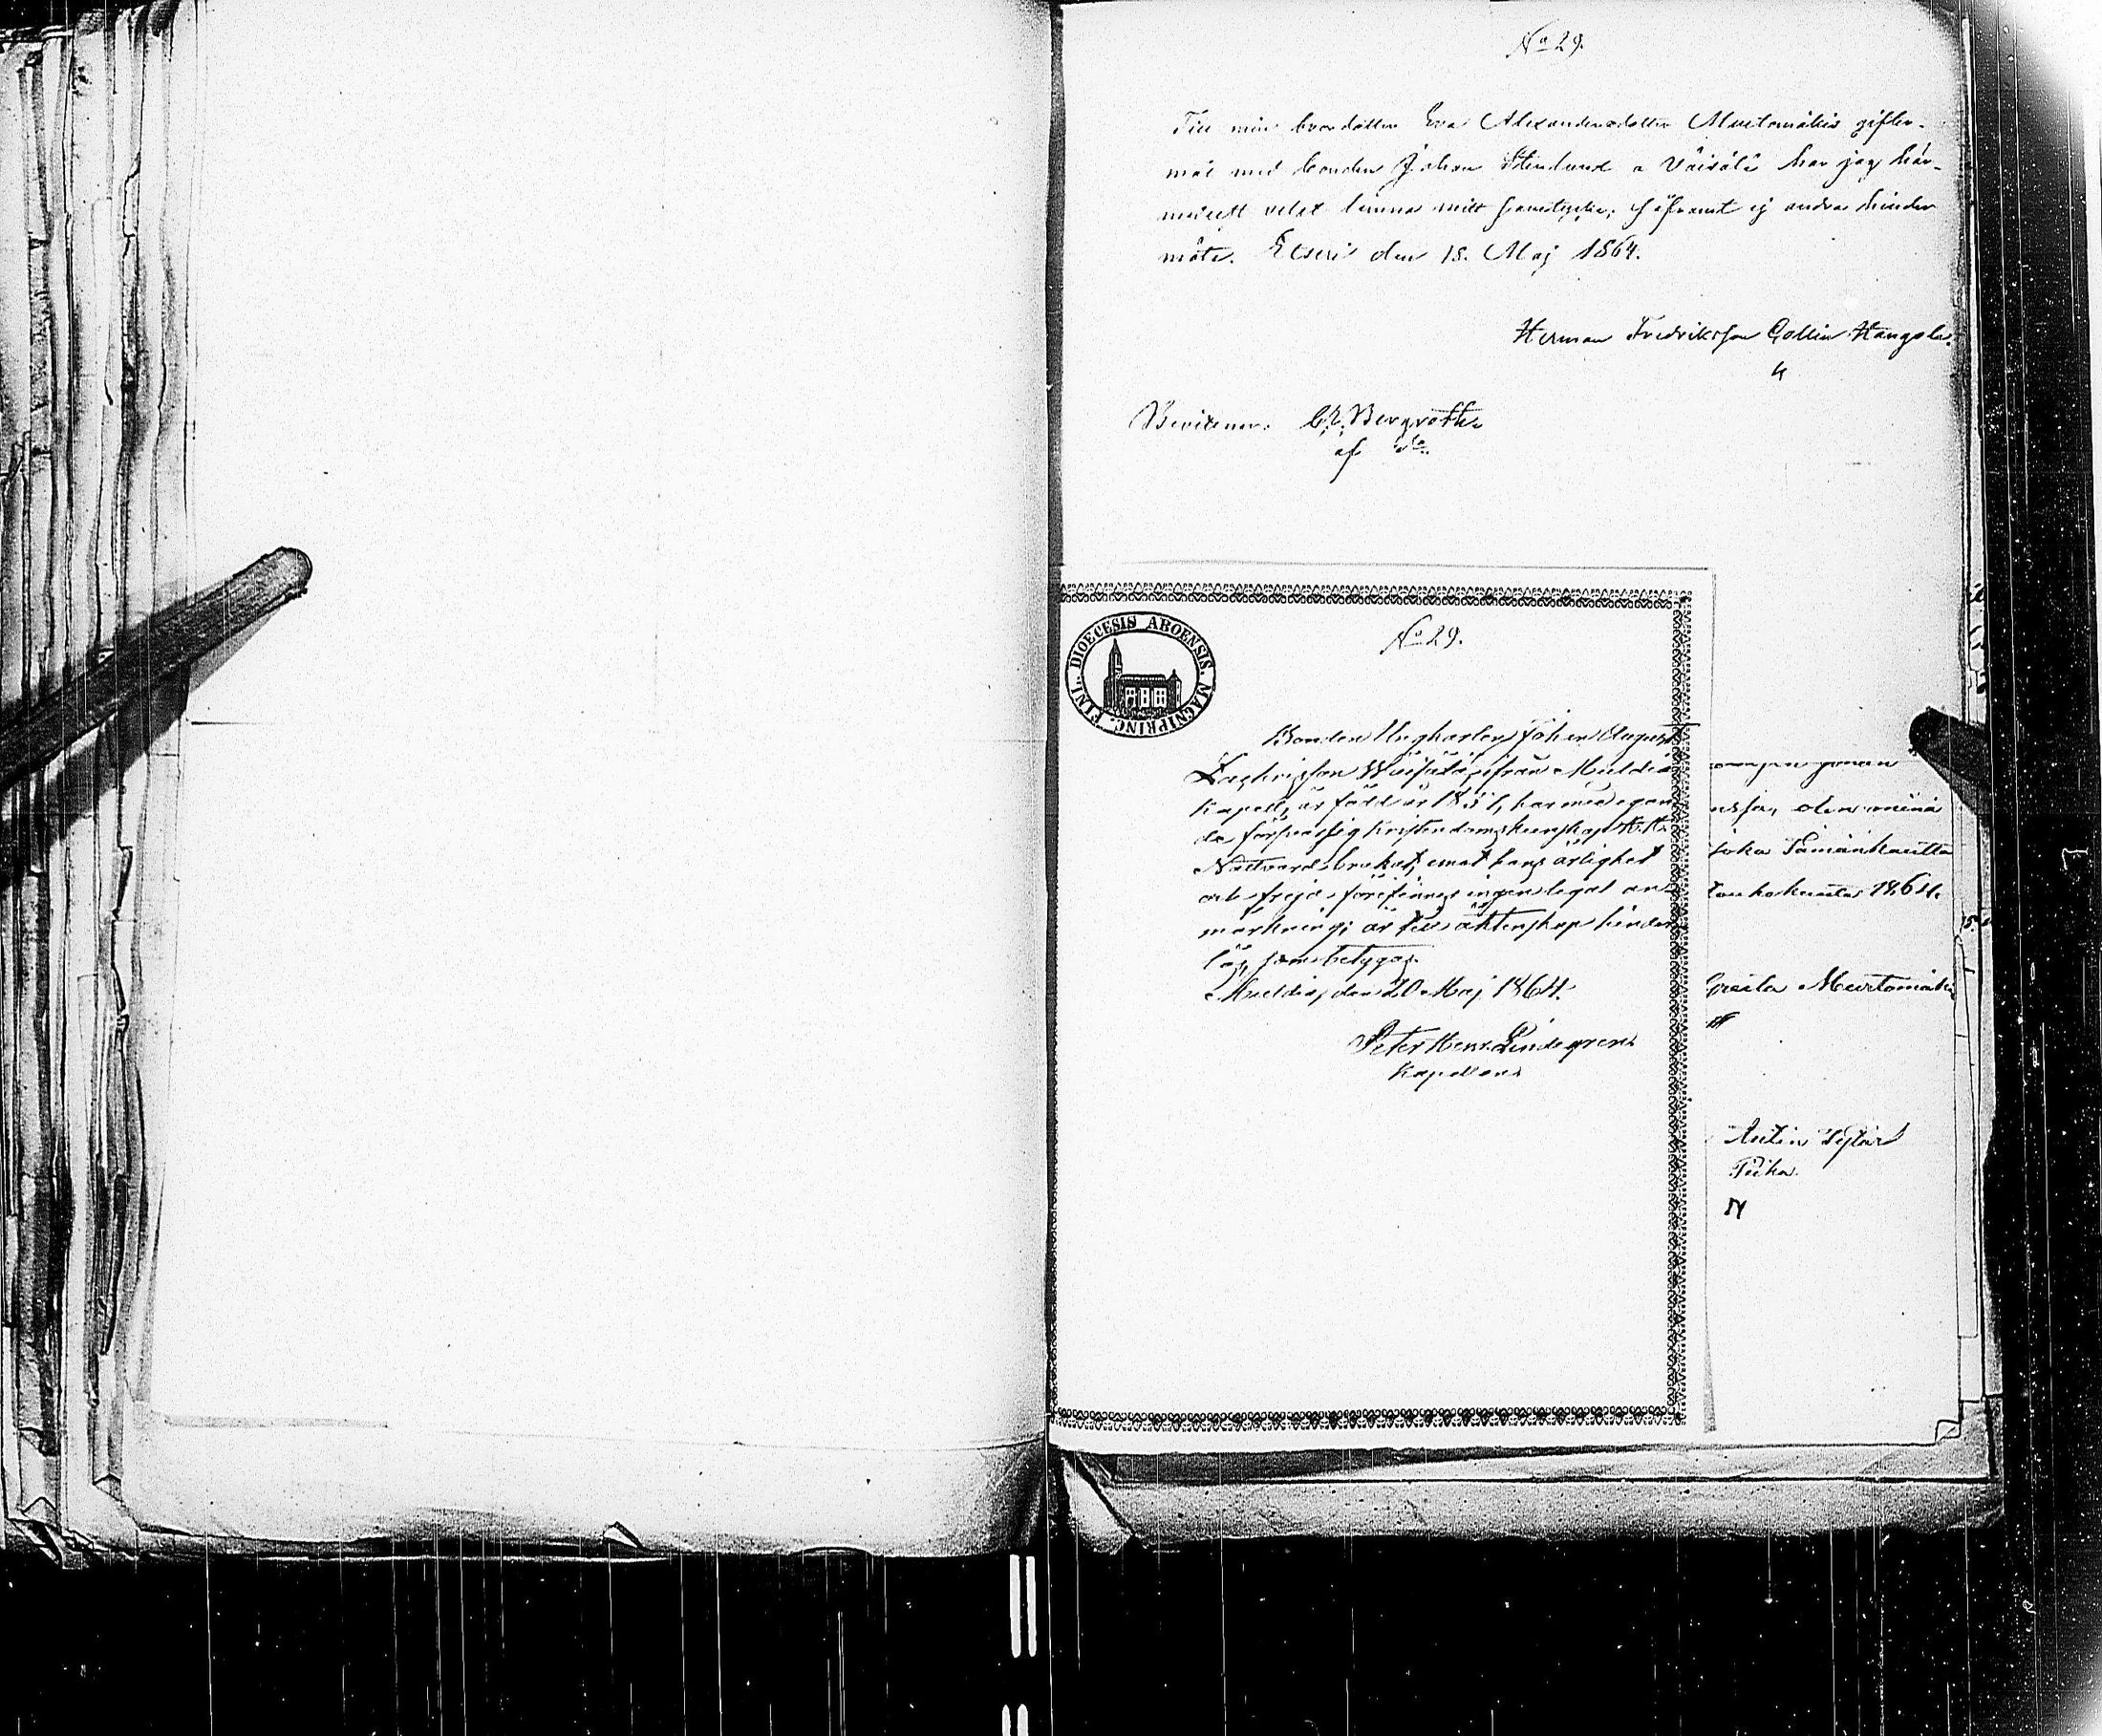 No 29.
Till min brordotter Eva Alexandersdotter Murtomäkis gifter-
mål med bonden Johan Stenlund a Väisälä har jag här-
medelst velat lemna mitt samtycke, såframt ej andra hinder
möta. Etseri den 18. Maj 1864.
Herman Fredriksson Collin Hangola.
Bevittnar: Bergroth
af
No 29.
DIOECESIS ABOENSIS. MAGNIPRINC. FINL.
Bonden Ungkarlen Johan August
Zachrisson Wäisälä, ifrån Muldia
Kapell, är född år 1837, har med egan
de försvarlig kristendomskunskap H. H.
Nattvard brukat, emot hans ärlighet
och frejd förefinnes ingen legal an-
märkning; är till äktenskap hinders
lös, som betygas.
Muldia, den 20 Maj 1864.
Peter Henr. Lindegren
Kapellan
nssa, olen minä
joka tämänkautta
Toukokuuta 1864.
Murtomäki
Antin